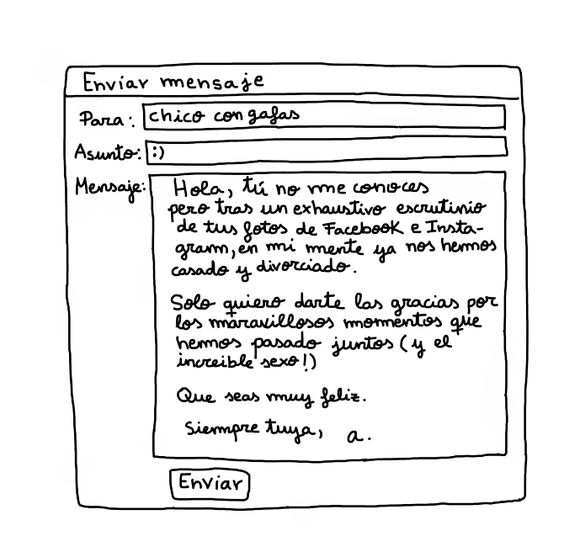 Enviar mensaje
Para: chico con gafas
Asunto: :)
Mensaje: Hola, tú no me conoces
pero tras un exhaustivo escrutinio
de tus fotos de Facebook e Insta-
gram, en mi mente ya nos hemos
casado y divorciado.
Solo quiero darte las gracias por
los maravillosos momentos que
hemos pasado juntos (y el
increible sexo!)
Que seas muy feliz.
Siempre tuya, a.
Enviar